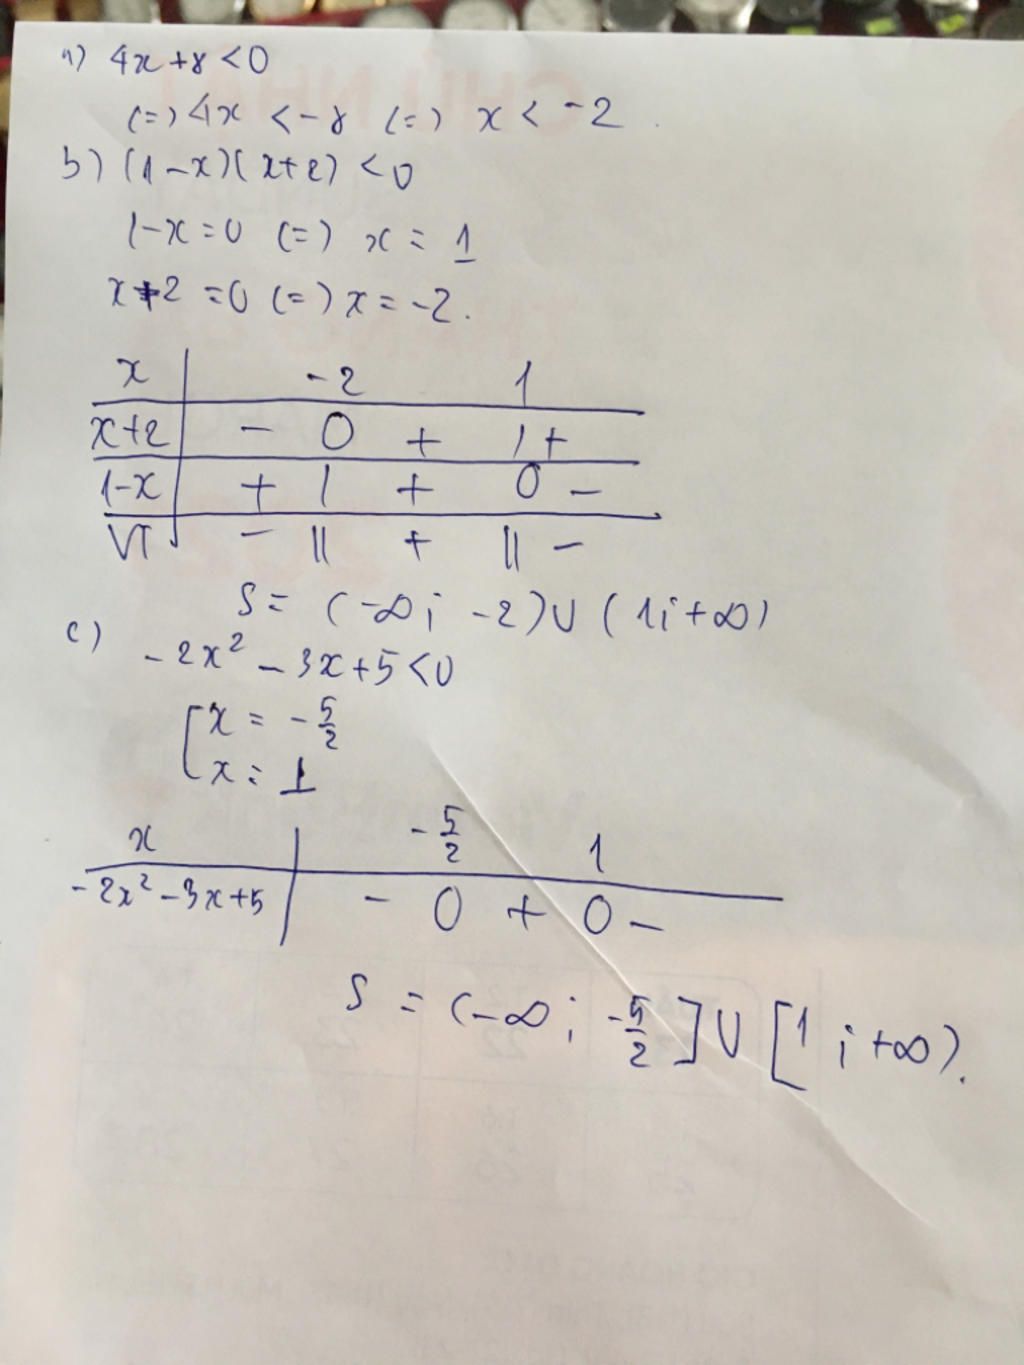 a) 4x+8<0
(=) 4x <-8 (=) x < -2.
b) (1-x)(x+2) <0
1-x=0 (=) x = 1
x+2 =0 (=) x = -2.
x -2 1
x+2 - 0 + | +
1-x + | + 0 -
VT - || + || -
S= (-∞; -2)∪(1;+∞)
c) -2x² -3x+5<0
[x = -5/2
x = 1
x -5/2 1
-2x²-3x+5 - 0 + 0 -
S = (-∞; -5/2]∪[1; +∞).